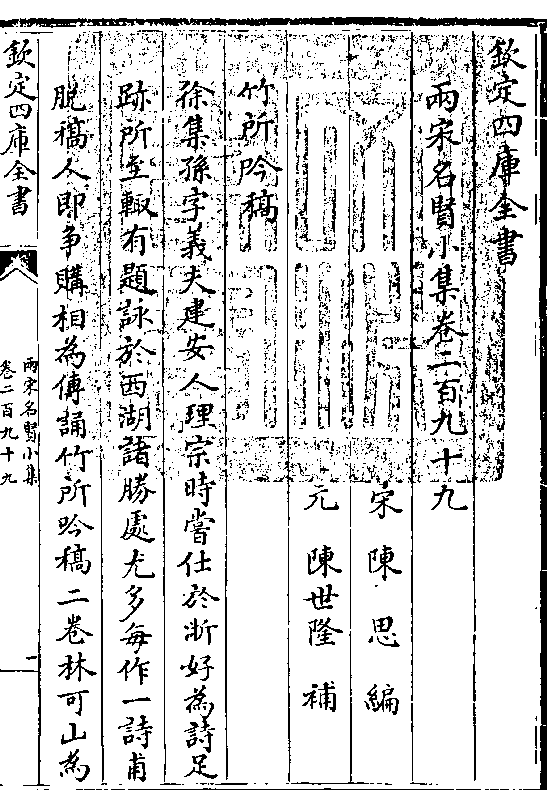 欽定四庫全書
兩宋名賢小集卷二百九十九
宋 陳思 編
元 陳世隆 補
竹所吟稿
徐集孫字義夫建安人理宗時嘗仕於浙好為詩足
跡所至輙有題詠於西湖諸勝處尤多每作一詩甫
脫稿人即争購相為傳誦竹所吟稿二卷林可山為
欽定四庫全書
兩宋名賢小集
卷二百九十九
一